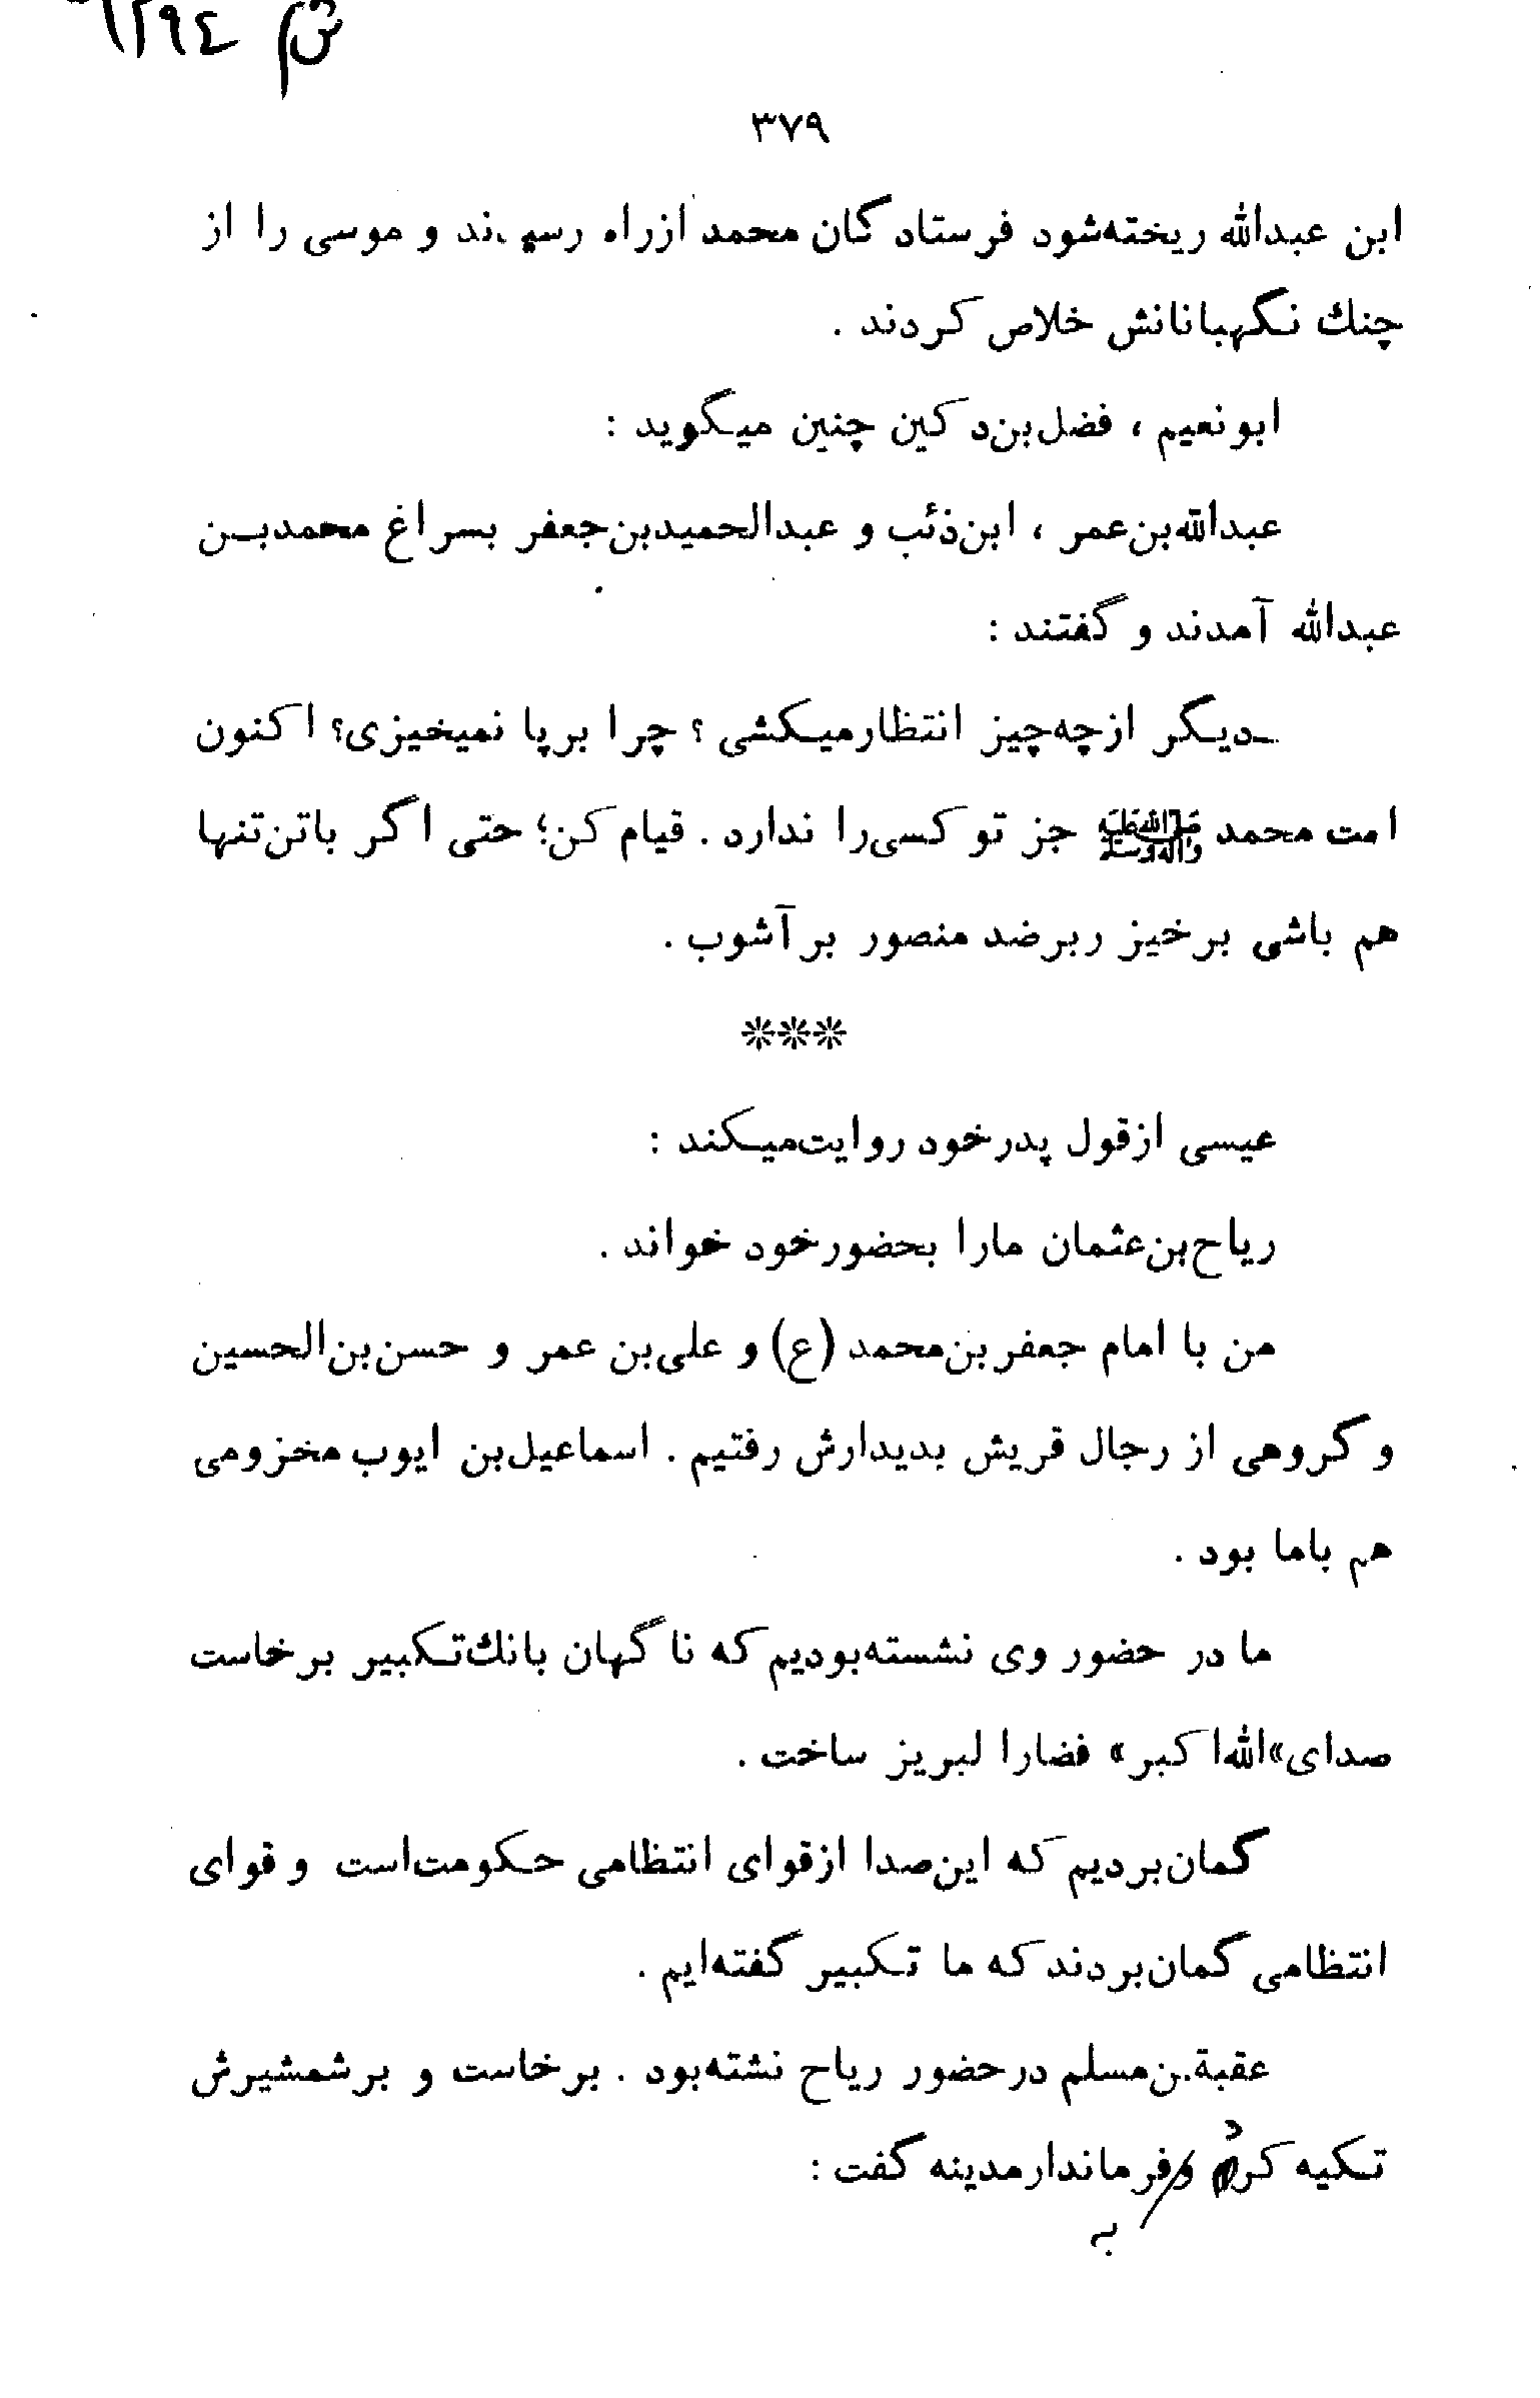 ٣٧٩
ابن عبدالله ریخته‌شود فرستادگان محمد ازراه رسیدند و موسی را از
چنك نگهبانانش خلاص کردند .
ابونعیم ، فضل‌بن‌دکین چنین میگوید :
عبدالله‌بن‌عمر ، ابن‌ذئب و عبدالحمیدبن‌جعفر بسراغ محمدبن
عبدالله آمدند و گفتند :
ـ‌دیگر ازچه‌چیز انتظارمیکشی ؟ چرا برپا نمیخیزی؟ اکنون
امت محمد ﷺ جز تو کسی‌را ندارد . قیام کن؛ حتی اگر باتن‌تنها
هم باشی برخیز ربرضد منصور برآشوب .
***
عیسی ازقول پدرخود روایت‌میکند :
ریاح‌بن‌عثمان مارا بحضورخود خواند .
من با امام جعفربن‌محمد (ع) و علی‌بن عمر و حسن‌بن‌الحسین
و گروهی از رجال قریش بدیدارش رفتیم . اسماعیل‌بن ایوب مخزومی
هم باما بود .
ما در حضور وی نشسته‌بودیم که ناگهان بانك‌تکبیر برخاست
صدای»الله‌اکبر» فضارا لبریز ساخت .
گمان‌بردیم که این‌صدا ازقوای انتظامی حکومت‌است و قوای
انتظامی گمان‌بردند که ما تکبیر گفته‌ایم .
عقبة‌بن‌مسلم درحضور ریاح نشته‌بود . برخاست و برشمشیرش
تکیه کرد و فرماندارمدینه گفت :
به